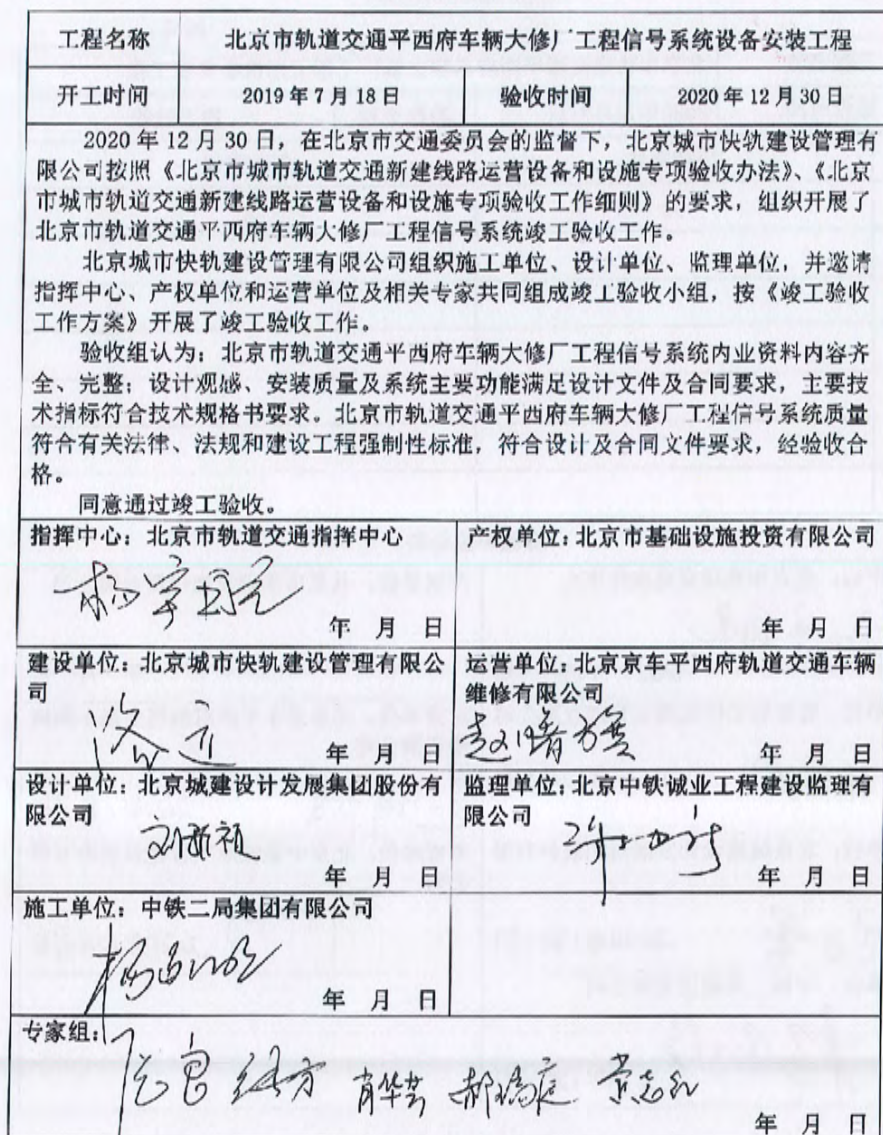 工程名称 北京市轨道交通平西府车辆大修厂工程信号系统设备安装工程
开工时间 2019年7月18日 验收时间 2020年12月30日
2020年12月30日，在北京市交通委员会的监督下，北京城市快轨建设管理有
限公司按照《北京市城市轨道交通新建线路运营设备和设施专项验收办法》、《北京
市城市轨道交通新建线路运营设备和设施专项验收工作细则》的要求，组织开展了
北京市轨道交通平西府车辆大修厂工程信号系统竣工验收工作。
北京城市快轨建设管理有限公司组织施工单位、设计单位、监理单位，并邀请
指挥中心、产权单位和运营单位及相关专家共同组成竣工验收小组，按《竣工验收
工作方案》开展了竣工验收工作。
验收组认为：北京市轨道交通平西府车辆大修厂工程信号系统内业资料内容齐
全、完整；设计观感、安装质量及系统主要功能满足设计文件及合同要求，主要技
术指标符合技术规格书要求。北京市轨道交通平西府车辆大修厂工程信号系统质量
符合有关法律、法规和建设工程强制性标准，符合设计及合同文件要求，经验收合
格。
同意通过竣工验收。
指挥中心：北京市轨道交通指挥中心
年 月 日
产权单位：北京市基础设施投资有限公司
年 月 日
建设单位：北京城市快轨建设管理有限公
司
年 月 日
运营单位：北京京车平西府轨道交通车辆
维修有限公司
年 月 日
设计单位：北京城建设计发展集团股份有
限公司
年 月 日
监理单位：北京中铁诚业工程建设监理有
限公司
年 月 日
施工单位：中铁二局集团有限公司
年 月 日
专家组：
年 月 日